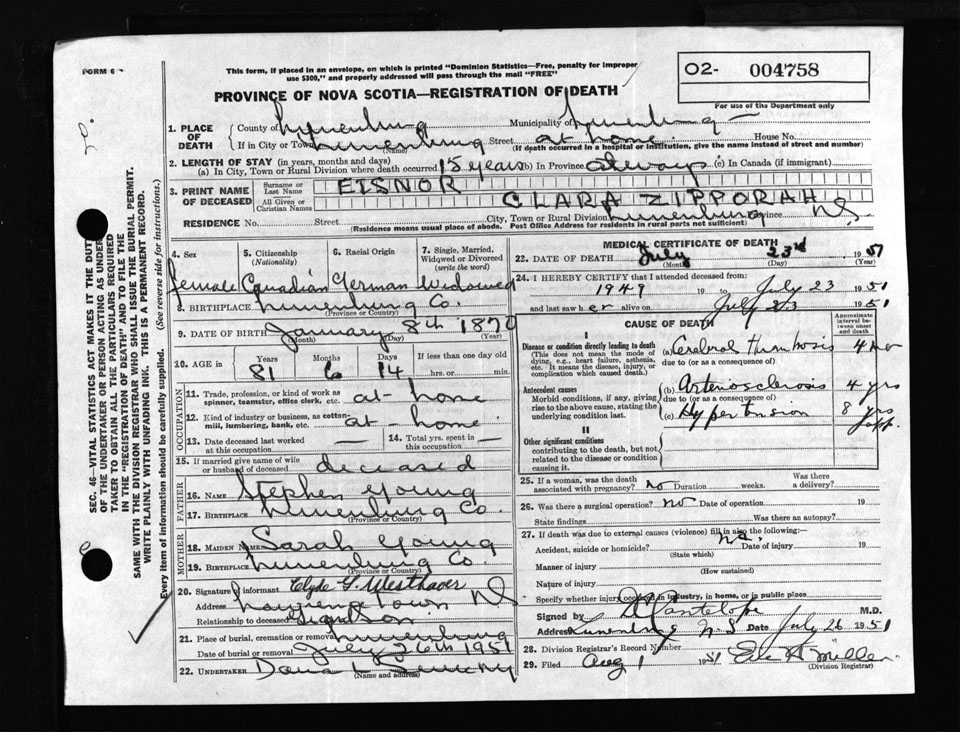 FORM 6
This form, if placed in an envelope, on which is printed "Dominion Statistics—Free, penalty for improper
use $300," and properly addressed will pass through the mail "FREE"
PROVINCE OF NOVA SCOTIA—REGISTRATION OF DEATH
O2- 004758
For use of the Department only
SEC. 46—VITAL STATISTICS ACT MAKES IT THE DUTY
OF THE UNDERTAKER OR PERSON ACTING AS UNDER-
TAKER TO OBTAIN ALL THE PARTICULARS REQUIRED
IN THE "REGISTRATION OF DEATH" AND TO FILE THE
SAME WITH THE DIVISION REGISTRAR WHO SHALL ISSUE THE BURIAL PERMIT.
WRITE PLAINLY WITH UNFADING INK. THIS IS A PERMANENT RECORD.
Every item of information should be carefully supplied. (See reverse side for instructions.)
1. PLACE OF DEATH County of Lunenburg Municipality of Lunenburg
If in City or Town Lunenburg Street at home House No.
(Name) (If death occurred in a hospital or institution, give the name instead of street and number)
2. LENGTH OF STAY (in years, months and days)
(a) In City, Town or Rural Division where death occurred 15 years (b) In Province always (c) In Canada (if immigrant)
3. PRINT NAME OF DECEASED Surname or Last Name EISNOR
All Given or Christian Names CLARA ZIPPORAH
RESIDENCE No. Street City, Town or Rural Division Lunenburg Province NS
(Residence means usual place of abode. Post Office Address for residents in rural parts not sufficient)
4. Sex 5. Citizenship (Nationality) 6. Racial Origin 7. Single, Married, Widowed or Divorced (write the word)
female Canadian German Widowed
8. BIRTHPLACE Lunenburg Co.
(Province or Country)
9. DATE OF BIRTH January 8th 1870
(Month) (Day) (Year)
10. AGE in Years Months Days If less than one day old
81 6 14 hrs. or min.
OCCUPATION
11. Trade, profession, or kind of work as spinner, teamster, office clerk, etc. at-home
12. Kind of industry or business, as cotton-mill, lumbering, bank, etc. at-home
13. Date deceased last worked at this occupation — 14. Total yrs. spent in this occupation —
15. If married give name of wife or husband of deceased deceased
FATHER
16. NAME Stephen Young
17. BIRTHPLACE Lunenburg Co.
(Province or Country)
MOTHER
18. MAIDEN NAME Sarah Young
19. BIRTHPLACE Lunenburg Co.
(Province or Country)
20. Signature of informant Clyde F. Westhaver
Address Lawrencetown NS
Relationship to deceased Grandson
21. Place of burial, cremation or removal Lunenburg
Date of burial or removal July 26th 1951
22. UNDERTAKER Dana L Sweeny
(Name and address)
MEDICAL CERTIFICATE OF DEATH
23. DATE OF DEATH July 23rd 1951
(Month) (Day) (Year)
24. I HEREBY CERTIFY that I attended deceased from
1949 19 to July 23 1951
and last saw her alive on July 23 1951
CAUSE OF DEATH
Approximate interval between onset and death
I
Disease or condition directly leading to death
(This does not mean the mode of dying, e.g., heart failure, asthenia, etc. It means the disease, injury, or complication which caused death.)
(a) Cerebral thrombosis
due to (or as a consequence of)
Antecedent causes
Morbid conditions, if any, giving rise to the above cause, stating the underlying condition last.
(b) Arteriosclerosis 4 yrs
due to (or as a consequence of)
(c) Hypertension 8 yrs app.
II
Other significant conditions contributing to the death, but not related to the disease or condition causing it.
25. If a woman, was the death associated with pregnancy? No Duration weeks. Was there a delivery?
26. Was there a surgical operation? No Date of operation 19
State findings Was there an autopsy?
27. If death was due to external causes (violence) fill in also the following:—
Accident, suicide or homicide? no. Date of injury 19
(State which)
Manner of injury
(How sustained)
Nature of injury
Specify whether injury occurred in industry, in home, or in public place
Signed by Cantelope M.D.
Address Lunenburg N S Date July 26 1951
28. Division Registrar's Record Number
29. Filed Aug 1 1951 Miller
(Division Registrar)